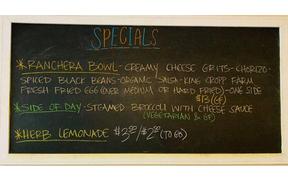 SPECIALS
*RANCHERA BOWL - CREAMY CHEESE GRITS - CHORIZO -
SPICED BLACK BEANS - ORGANIC SALSA - KING CROPP FARM
FRESH FRIED EGG (OVER MEDIUM OR HARD FRIED) - ONE SIDE
$13 (GF)
*SIDE OF DAY - STEAMED BROCOLI WITH CHEESE SAUCE
(VEGETARIAN & GF)
*HERB LEMONADE $3.50/$2.00 (TO GO)